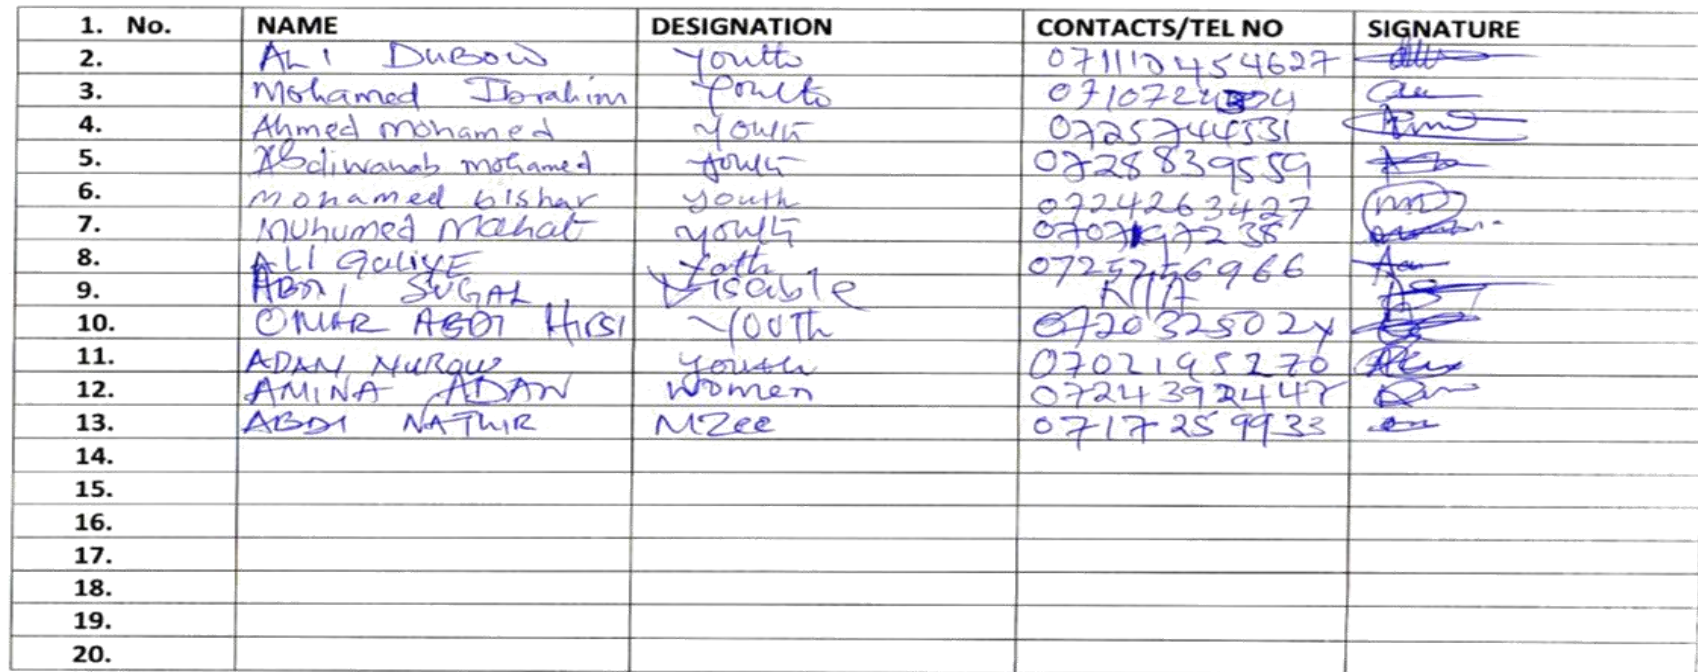 1. No. NAME DESIGNATION CONTACTS/TEL NO SIGNATURE
2. ALI DUBOW Youth 071110454627
3. Mohamed Ibrahim Youth
4. Ahmed Mohamed Youth 0725744531
5. Abdiwahab mohamed Youth 0728839559
6. mohamed bishar youth 0724263427
7. Muhumed Mahat youth
8. ALI GULIYE Yoth 0725256966
9. ABDI SUGAL Disable N/A
10. OMAR ABDI HIRSI YOUTH
11. ADAN NUROW youth 0702195270
12. AMINA ADAN Women
13. ABDI NATHIR MZee 0717259933
14.
15.
16.
17.
18.
19.
20.